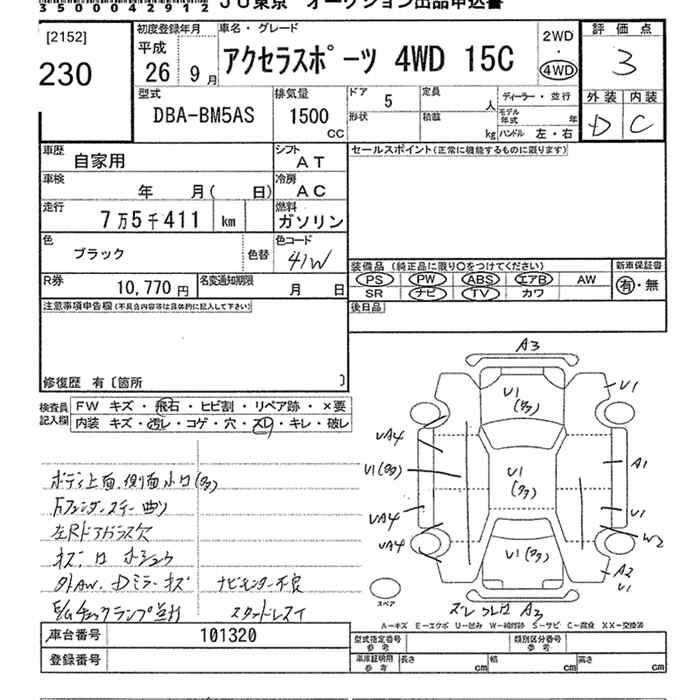 350004 2912 JU東京 オークション出品申込書
[2152]
230
初度登録年月
平成
26 9月
車名・グレード
アクセラスポーツ 4WD 15C
2WD
・
4WD
評価点
3
外装 内装
D C
型式
DBA-BM5AS
排気量
1500
CC
ドア 5
定員 人
ディーラー・並行
形状
積載 kg
モデル年式 年
ハンドル 左・右
車歴 自家用
シフト AT
セールスポイント(正常に機能するものに限ります)
車検 年 月( 日)
冷房 AC
走行 7万5千411 km
燃料 ガソリン
色 ブラック
色替
色コード 41W
R券 10,770円
名変通知期限 月 日
装備品(純正品に限り○をつけてください)
新車保証書
PS PW ABS エアB AW
有・無
SR ナビ TV カワ
後日品
注意事項申告欄(不具合内容等は具体的に記入して下さい)
修復歴 有〔箇所 〕
検査員記入欄
FW キズ・飛石・ヒビ割・リペア跡・×要
内装 キズ・汚レ・コゲ・穴・スレ・キレ・破レ
ボディ上面、側面小凹(多)
左Rドアガラス欠
外AW、Dミラーキズ ナビモニター不良
E/Gチェックランプ点灯 スタッドレス
A3
U1
(多)
U1
UA4
U1(多)
U1
(多)
A1
UA4
U1
UA4
U1(多)
W2
A2
U1
スペア
A3
A=キズ E=エクボ U=凹み W=補修跡 S=サビ C=腐食 XX=交換済
車台番号 101320
登録番号
型式指定番号 参考
類別区分番号 参考
車庫証明用 参考
長さ cm
幅 cm
高さ cm